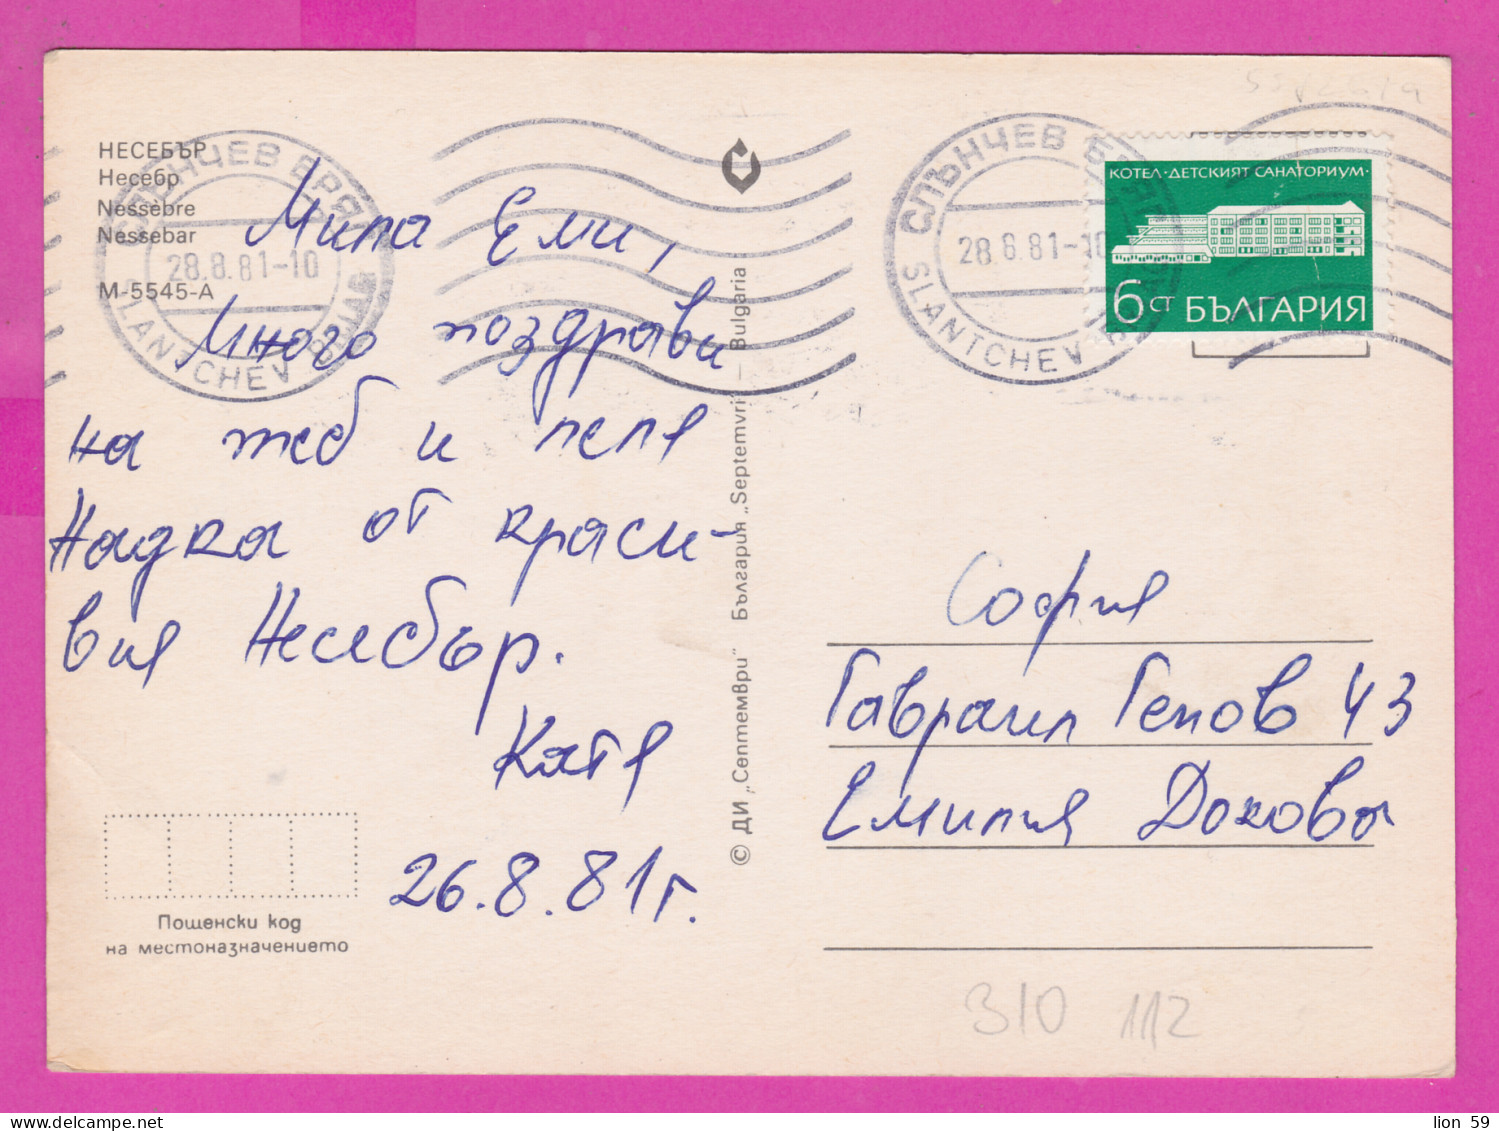 НЕСЕБЪР
Несебр
Nessèbre
Nessebar
M-5545-A
СЛЪНЧЕВ БРЯГ
28.8.81-10
SLANTCHEV BRIAG
СЛЪНЧЕВ БРЯГ
28.8.81-10
SLANTCHEV BRIAG
КОТЕЛ·ДЕТСКИЯТ САНАТОРИУМ·
6СТ БЪЛГАРИЯ
Мила Еми,
Много поздрави
на теб и леля
Надка от краси-
вия Несебър.
Катя
26.8.81г.
Пощенски код
на местоназначението
© ДИ „Септември" България „Septemvri" — Bulgaria
София
Гавраил Генов 43
Емилия Докова
310 112
lion 59